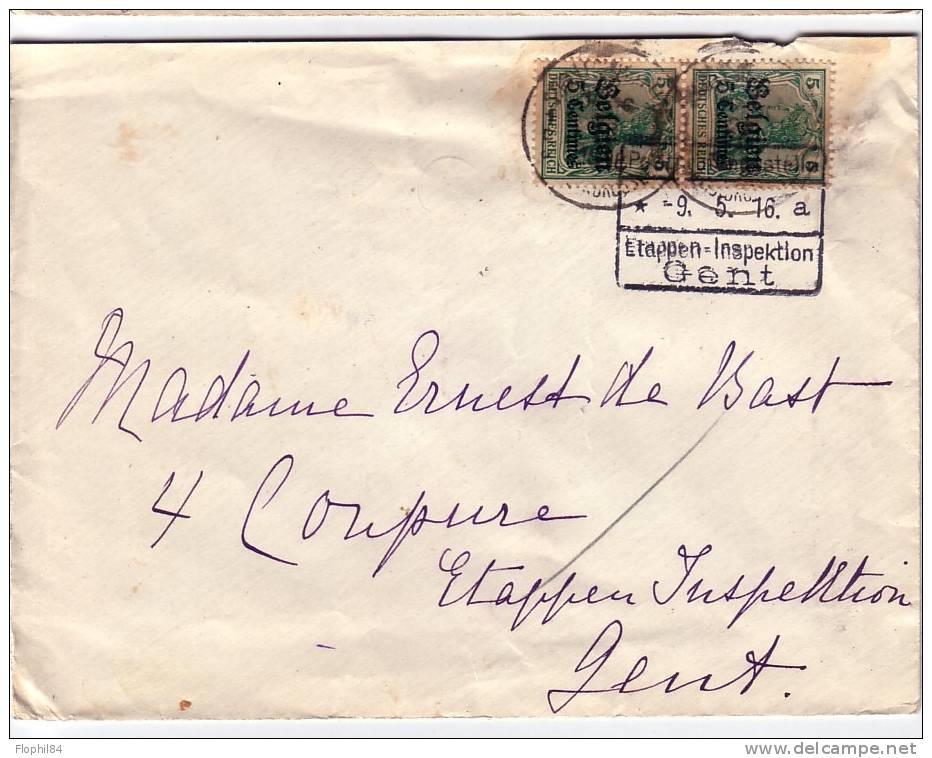 5 5
Belgien
5 Centimes
DEUTSCHES REICH
5 5
Belgien
5 Centimes
DEUTSCHES REICH
* -9. 5. 16. a
Etappen-Inspektion
Gent
Madame Ernest de Bast
4 Coupure
Etappen Inspektion
Gent.
Flophil84
www.delcampe.net